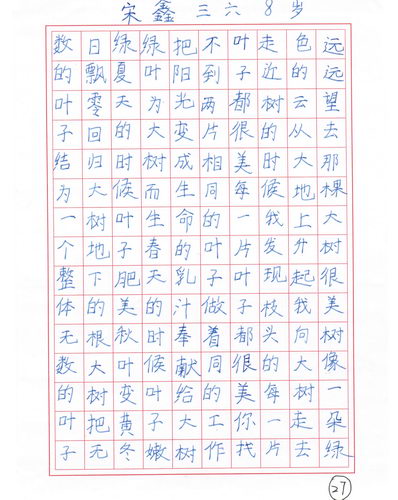 宋鑫 三六 8岁
远远望去那棵大树很美树像一朵绿
色的云从大地上升起我向大树走去
走近树的时候我发现枝头的每一片
叶子都很美每一片叶子都很美你找
不到两片相同的叶子做着同的工作
把阳光变成生命的乳汁奉献给大树
绿叶为大树而生春天的时候叶子嫩
绿夏天的时候叶子肥美秋叶变黄冬
日飘零回归大树地下的根大树把无
数的叶子结为一个整体无数的叶子
27